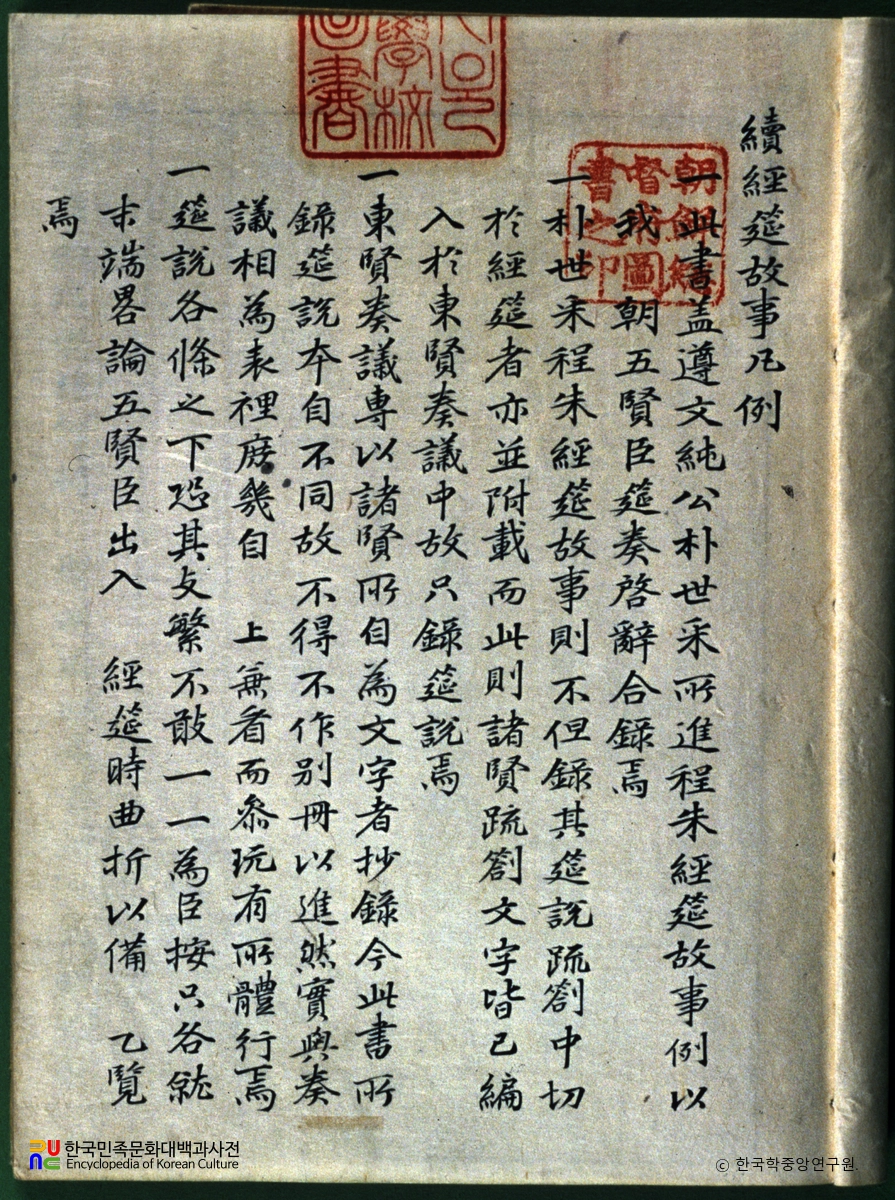 續經筵故事凡例
一此書盖遵文純公朴世采所進程朱經筵故事例以
我 朝五賢臣筵奏啓辭合録焉
一朴世采程朱經筵故事則不但録其筵說疏劄中切
於經筵者亦並附載而此則諸賢疏劄文字皆已編
入於東賢奏議中故只録筵說焉
一東賢奏議専以諸賢所自為文字者抄録今此書所
録筵說夲自不同故不得不作别冊以進然實與奏
議相為表裡庶幾自 上兼看而叅玩有所體行焉
一筵說各條之下恐其文繁不敢一一為臣按只各就
末端畧論五賢臣出入 經筵時曲折以備 乙覽
焉
朝鮮總
督府圖
書之印
學校
圖書
한국민족문화대백과사전
Encyclopedia of Korean Culture
© 한국학중앙연구원.